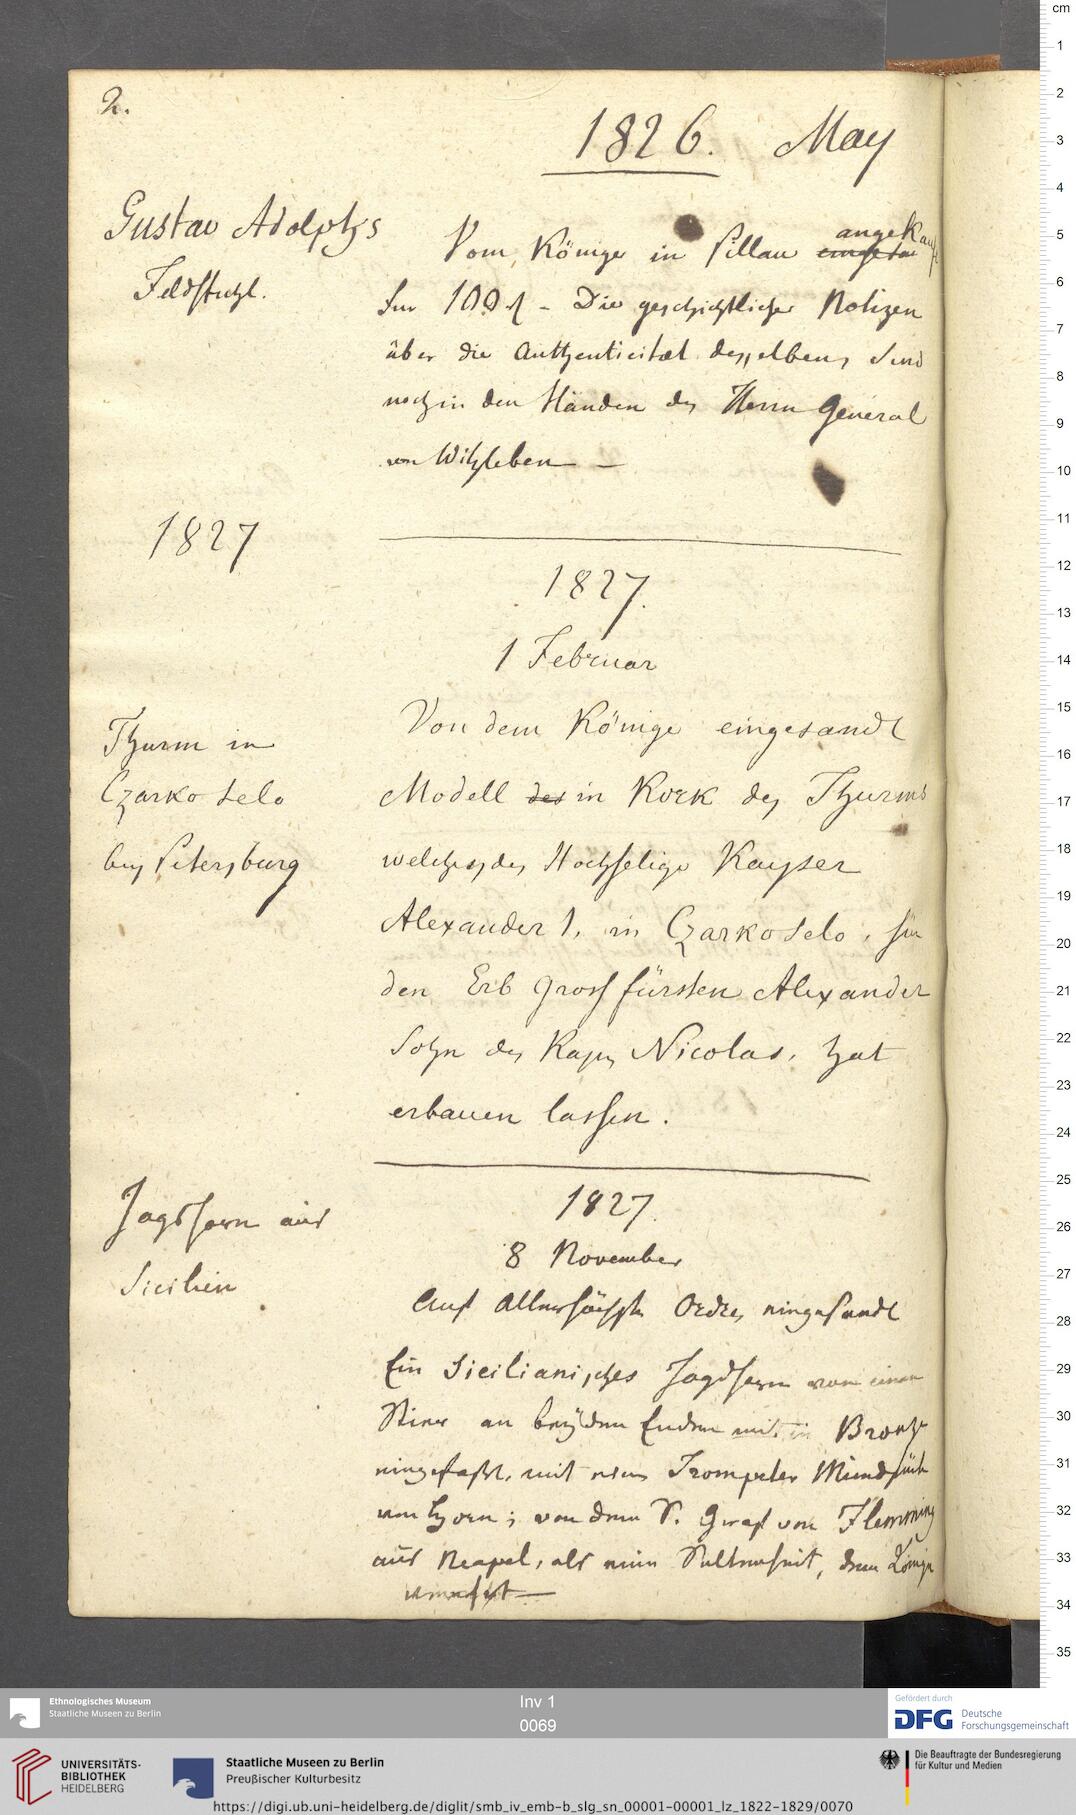 2.
1826. May
Gustav Adolphs
Feldstuhl.
Vom Könige in Pillau eingesan angekauft
für 100 rl - Die geschichtliche Notizen
über die Authenticitæt desselben, sind
noch in den Händen des Herrn General
von Witzleben —
1827
1827.
1 Februar
Thurm in
Czarko Selo
bey Petersburg
Von dem Könige eingesandt
Modell des in Kork des Thurms
welches der Hochselige Kayser
Alexander 1, in Czarko Selo, für
den Erb Gross fürsten Alexander
Sohn des Kays Nicolas, hat
erbauen lassen.
Jagdhorn aus
Sicilien
1827.
8 November
Auf Allerhöchste Ordre, eingesandt
Ein Sicilianisches Jagdhorn von einem
Stier an beyden Enden mit in Bronze
eingefasst, mit einem Trompeter Mundstück
von Horn; von dem H. Graf von Flemming
aus Neapel, als eine Seltenheit, dem Könige
verehrt —
cm
1
2
3
4
5
6
7
8
9
10
11
12
13
14
15
16
17
18
19
20
21
22
23
24
25
26
27
28
29
30
31
32
33
34
35
Ethnologisches Museum
Staatliche Museen zu Berlin
Inv 1
0069
Gefördert durch
DFG Deutsche
Forschungsgemeinschaft
UNIVERSITÄTS-
BIBLIOTHEK
HEIDELBERG
Staatliche Museen zu Berlin
Preußischer Kulturbesitz
Die Beauftragte der Bundesregierung
für Kultur und Medien
https://digi.ub.uni-heidelberg.de/diglit/smb_iv_emb-b_slg_sn_00001-00001_lz_1822-1829/0070